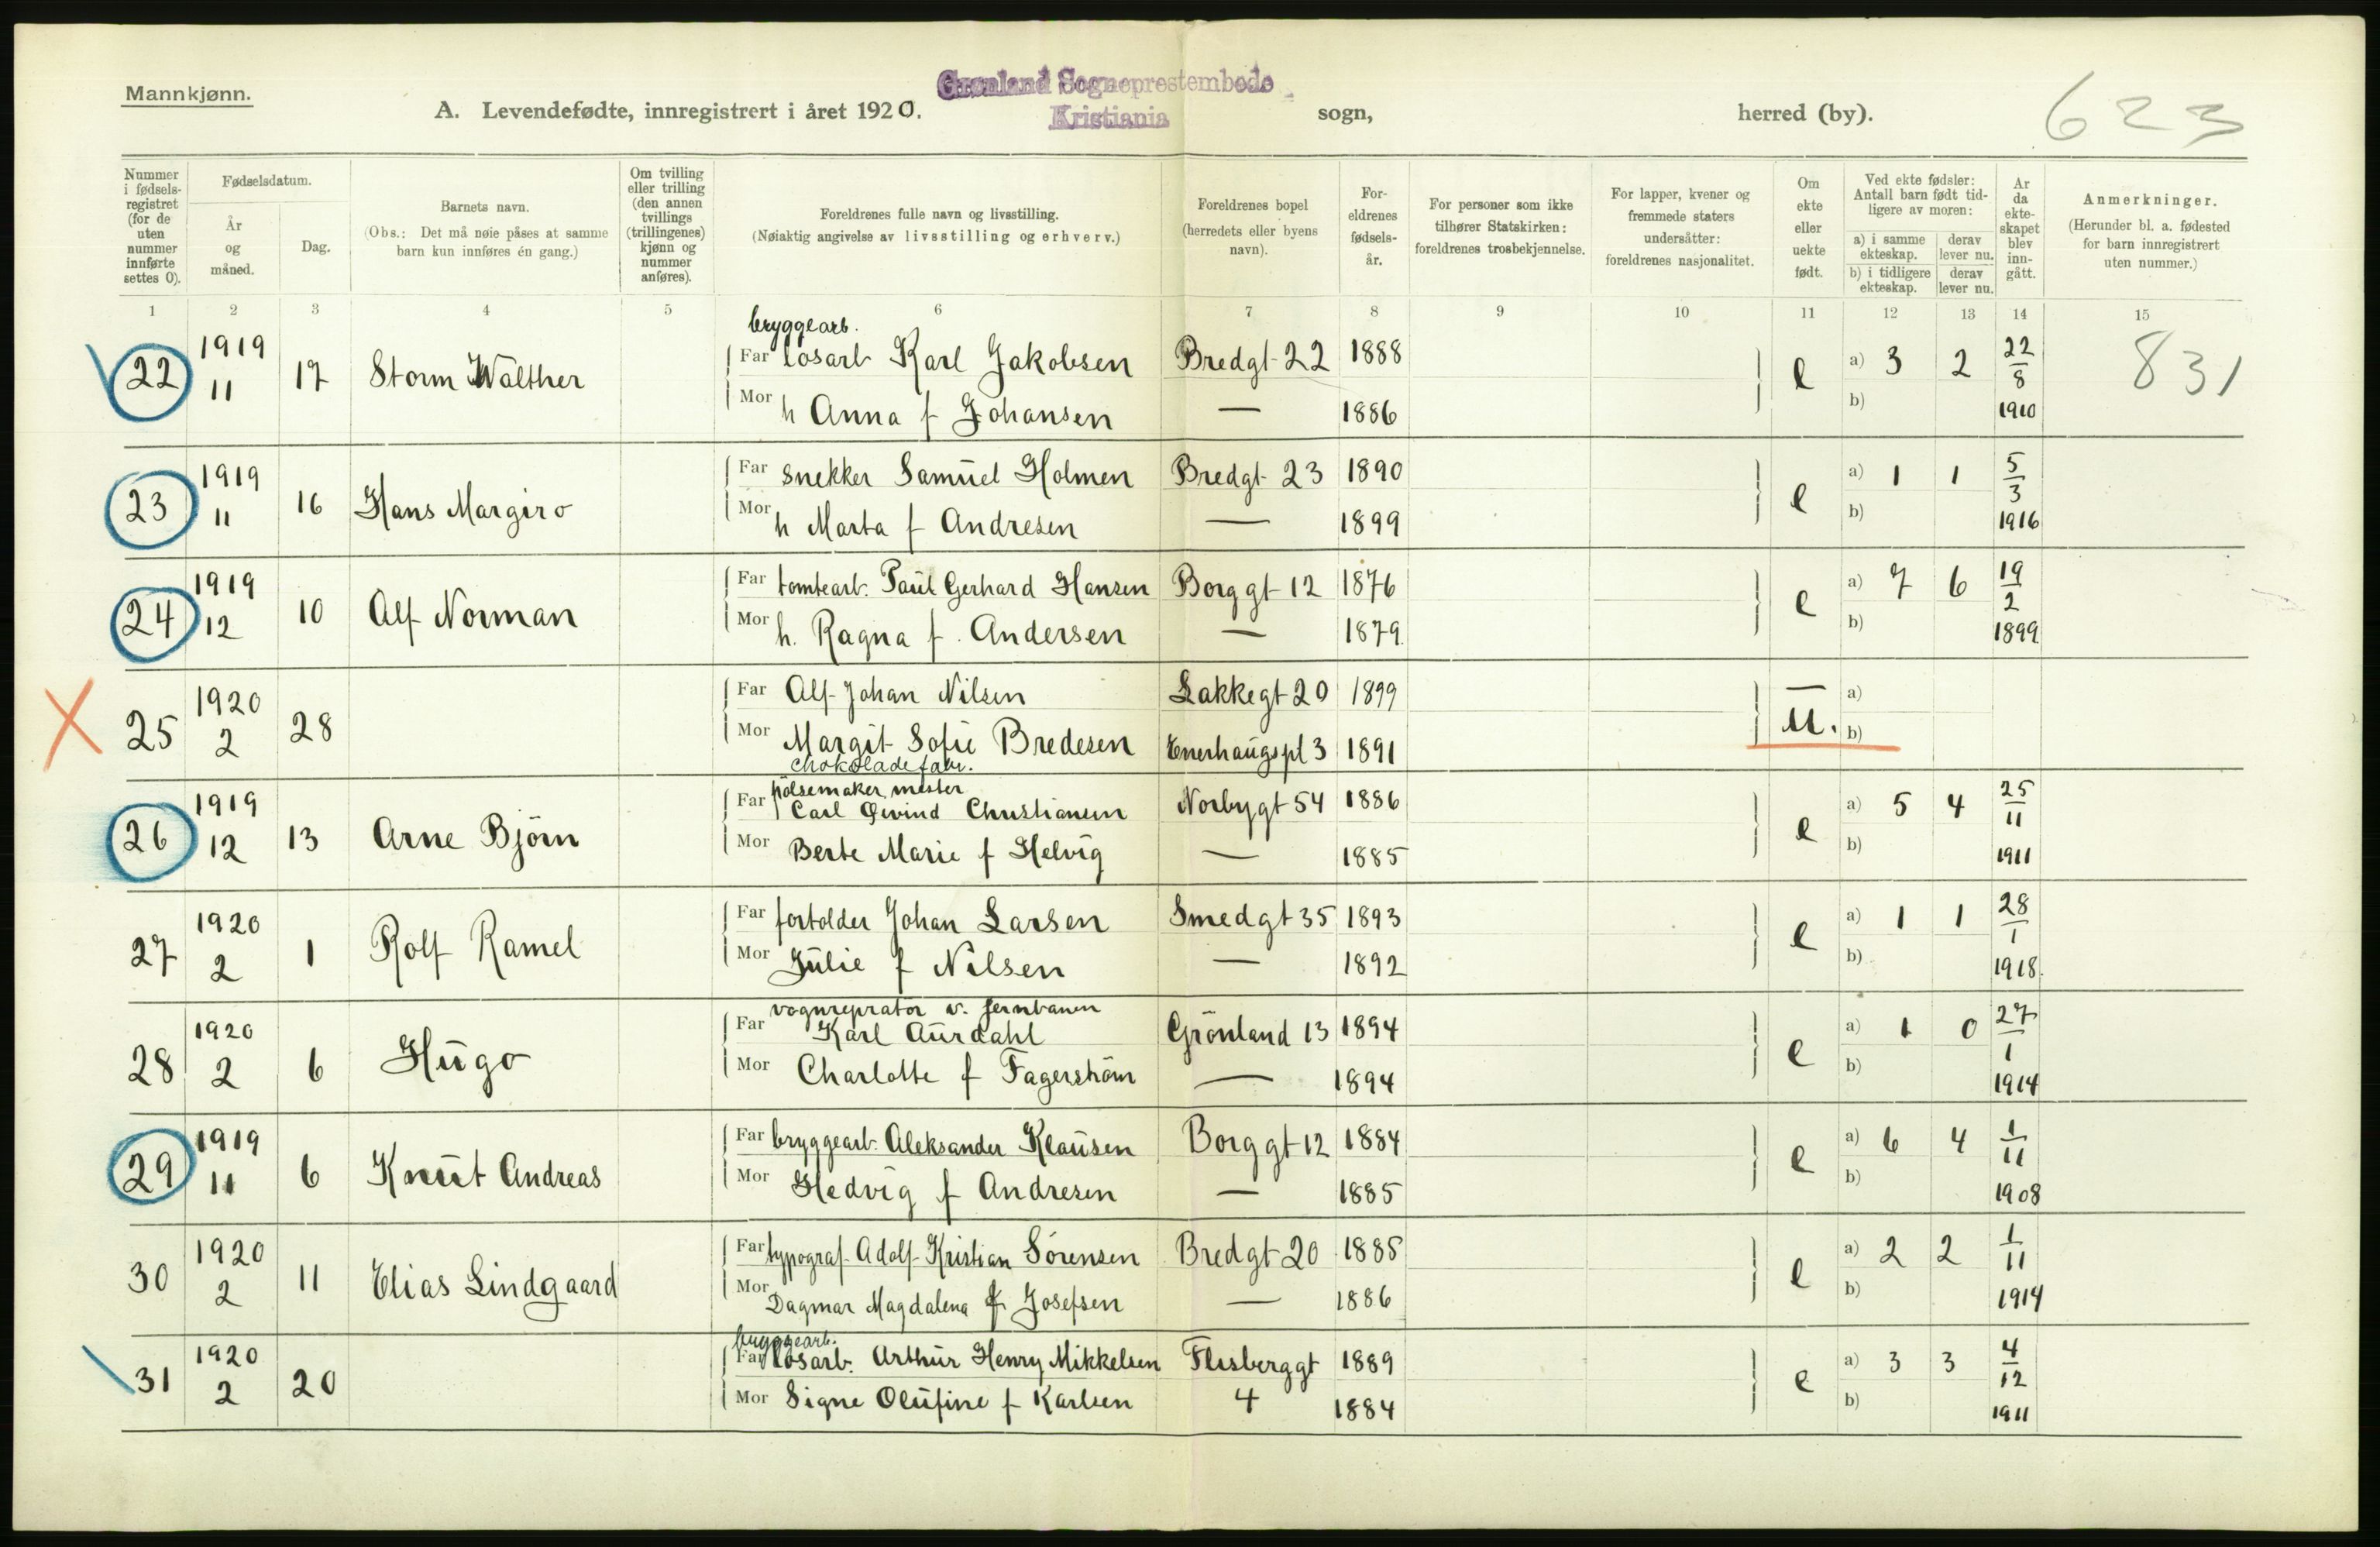 Mannkjønn.
A. Levendefødte, innregistrert i året 1920. Grønland Sogneprestembede Kristiania sogn, herred (by). 623
Nummer i fødselsregistret (for de uten nummer innførte settes 0).
Fødselsdatum.
År og måned.
Dag.
Barnets navn.
(Obs.: Det må nøie påses at samme barn kun innføres én gang.)
Om tvilling eller trilling (den annen tvillings (trillingenes) kjønn og nummer anføres).
Foreldrenes fulle navn og livsstilling.
(Nøiaktig angivelse av livsstilling og erhverv.)
Foreldrenes bopel (herredets eller byens navn).
Foreldrenes fødselsår.
For personer som ikke tilhører Statskirken: foreldrenes trosbekjennelse.
For lapper, kvener og fremmede staters undersåtter: foreldrenes nasjonalitet.
Om ekte eller uekte født.
Ved ekte fødsler: Antall barn født tidligere av moren:
a) i samme ekteskap. derav lever nu.
b) i tidligere ekteskap. derav lever nu.
År da ekteskapet blev inngått.
Anmerkninger.
(Herunder bl. a. fødested for barn innregistrert uten nummer.)
1 2 3 4 5 6 7 8 9 10 11 12 13 14 15
bryggearb.
22 1919 11 17 Storm Walther Far løsarb Karl Jakobsen Bredgt 22 1888 e a) 3 2 22/8 1910 831
Mor h Anna f Johansen — 1886 b)
23 1919 11 16 Hans Margiro Far snekker Samuel Holmen Bredgt 23 1890 e a) 1 1 5/3 1916
Mor h Marta f Andresen — 1899 b)
24 1919 12 10 Alf Norman Far tomtearb. Paul Gerhard Hansen Borggt 12 1876 e a) 7 6 19/2 1899
Mor h. Ragna f. Andersen — 1879. b)
25 1920 2 28 Far Alf Johan Nilsen Lakkegt 20 1899 — a)
Mor Margit Sofie Bredesen Enerhaugspl 3 1891 u. b)
chokoladefabr.
pölsemaker mester
26 1919 12 13 Arne Björn Far Carl Øivind Christiansen Norbygt 54 1886 e a) 5 4 25/11 1911
Mor Berte Marie f Helvig — 1885 b)
27 1920 2 1 Rolf Ramel Far fortolder Johan Larsen Smedgt 35 1893 e a) 1 1 28/1 1918.
Mor Julie f Nilsen — 1892 b)
vognrepratör v. jernbanen
28 1920 2 6 Hugo Far Karl Aurdahl Grönland 13 1894 e a) 1 0 27/1 1914
Mor Charlotte f Fagerström — 1894 b)
29 1919 11 6 Knut Andreas Far bryggearb. Aleksander Klausen Borggt 12 1884 e a) 6 4 1/11 1908
Mor Hedvig f Andresen — 1885 b)
30 1920 2 11 Elias Lindgaard Far typograf Adolf Kristian Sörensen Bredgt 20 1885 e a) 2 2 1/11 1914
Mor Dagmar Magdalena f Josefsen — 1886 b)
bryggearb.
31 1920 2 20 Far løsarb. Arthur Henry Mikkelsen Flisberggt 1889 e a) 3 3 4/12 1911
Mor Signe Olufine f Karlsen 4 1884 b)